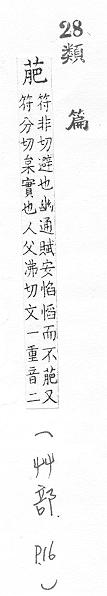 28
類篇
萉
符非切避也幽通賦安慆慆而不萉又
符分切枲實也人父沸切文一重音二
(艸部 P.16)